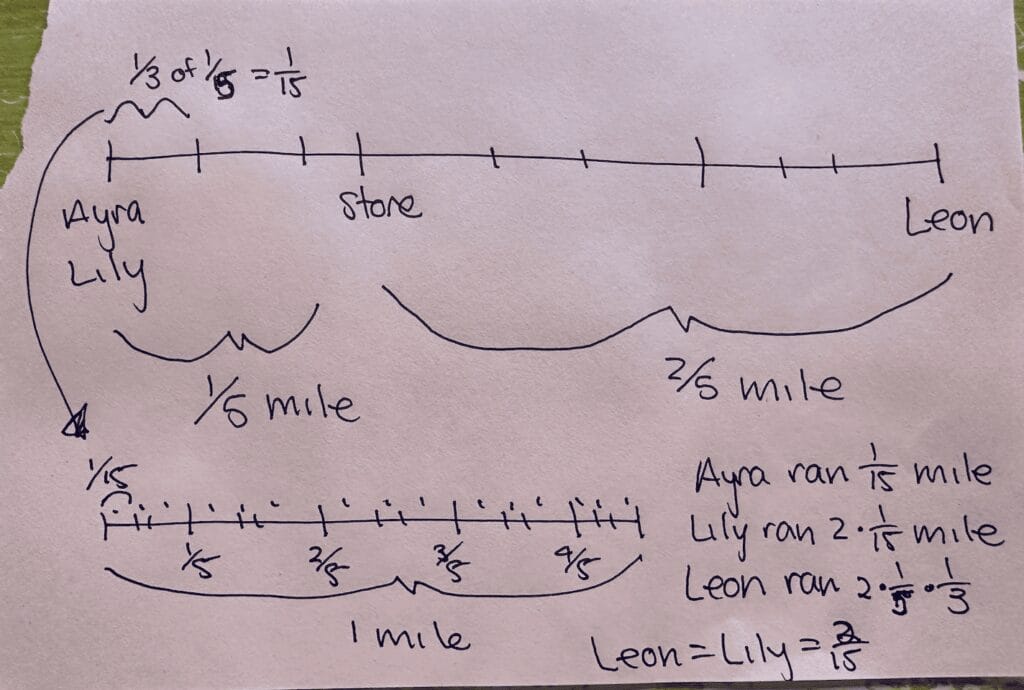 1/3 of 1/5 = 1/15
Ayra store Leon
Lily
1/5 mile 2/5 mile
1/15
1/5 2/5 3/5 4/5
1 mile
Ayra ran 1/15 mile
Lily ran 2 · 1/15 mile
Leon ran 2 · 1/5 · 1/3
Leon = Lily = 2/15